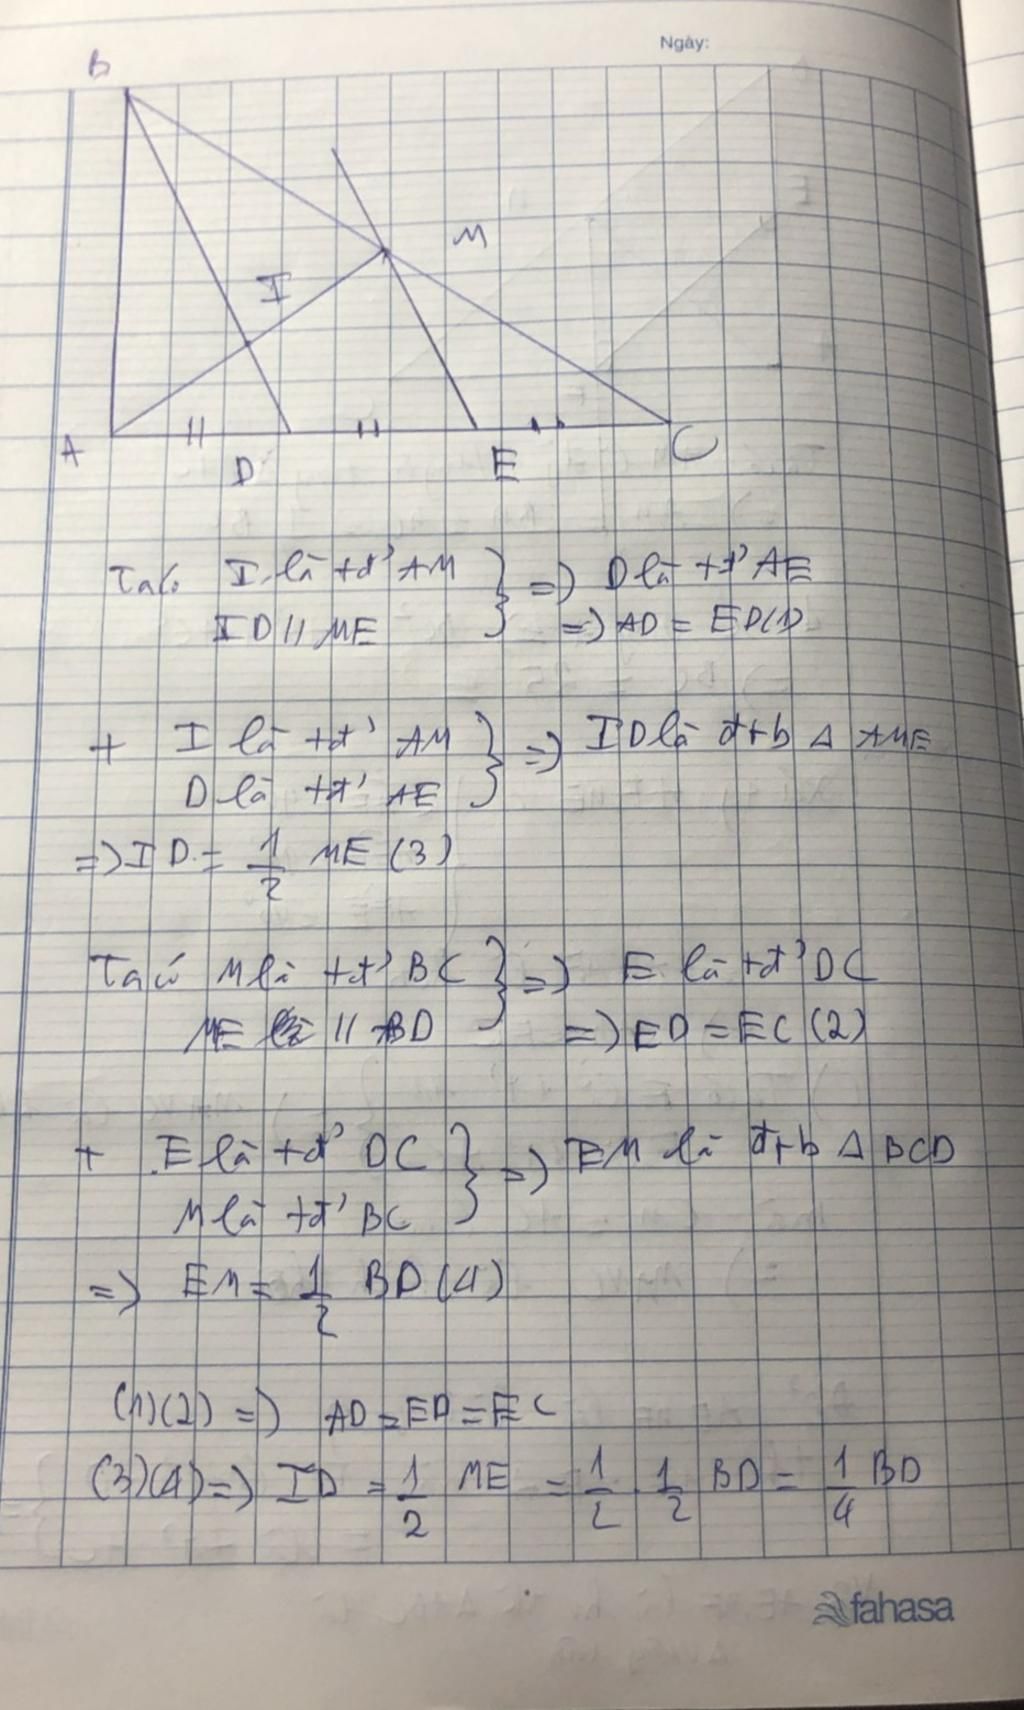 Ngày:
B
M
I
A
D
E
C
Ta có I là tđ' AM } => D là tđ' AE
ID // ME => AD = ED (1)
+ I là tđ' AM } => ID là đtb Δ AME
D là tđ' AE
=> ID = 1/2 ME (3)
Ta có M là tđ' BC } => E là tđ' DC
ME // BD => ED = EC (2)
+ E là tđ' DC } => EM là đtb Δ BCD
M là tđ' BC
=> EM = 1/2 BD (4)
(1)(2) => AD = ED = EC
(3)(4) => ID = 1/2 ME = 1/2 . 1/2 BD = 1/4 BD
fahasa